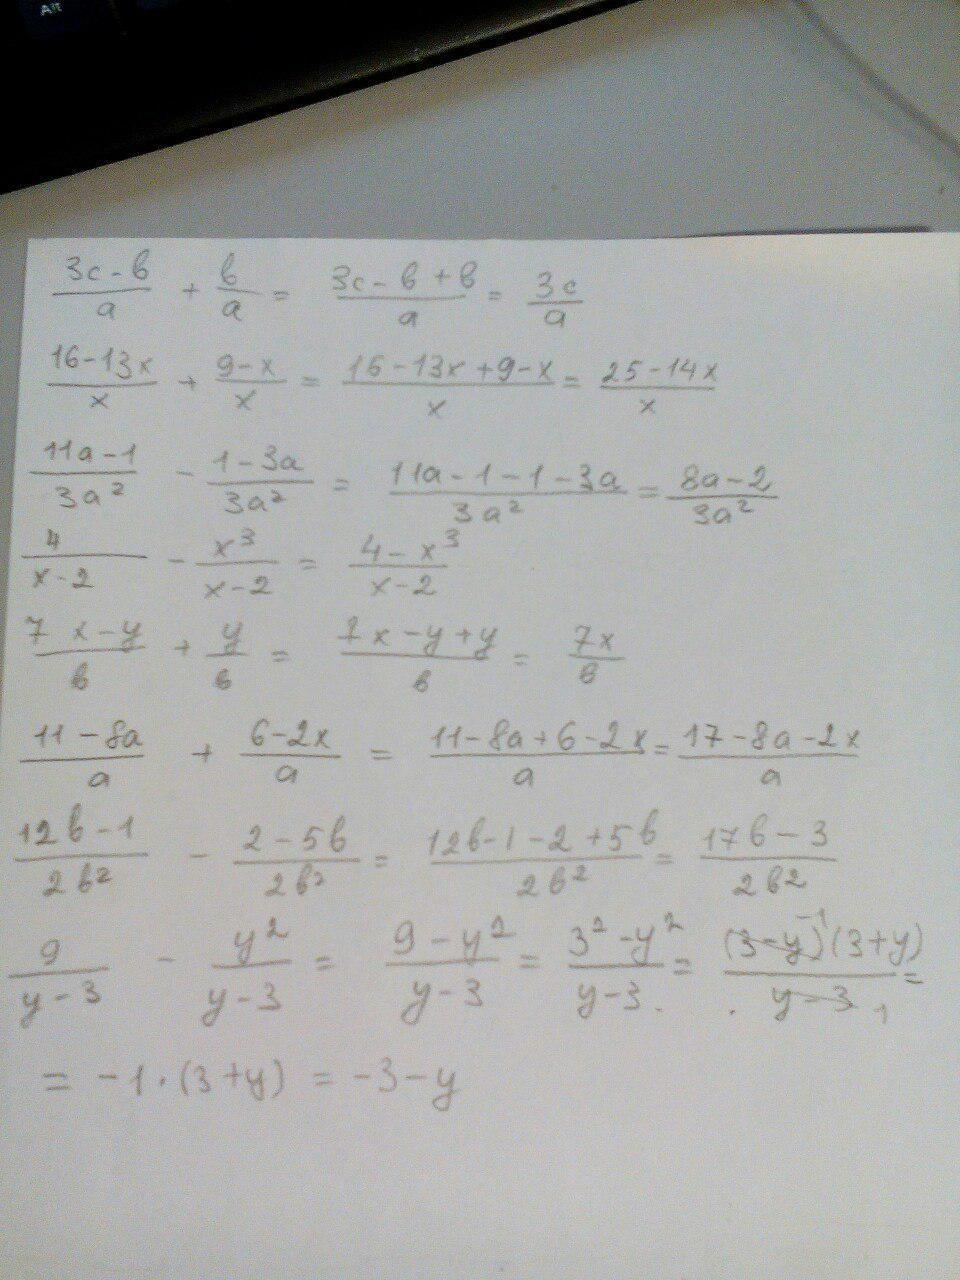 Alt
(3c-b)/a + b/a = (3c-b+b)/a = 3c/a
(16-13x)/x + (9-x)/x = (16-13x+9-x)/x = (25-14x)/x
(11a-1)/3a² - (1-3a)/3a² = (11a-1-1-3a)/3a² = (8a-2)/3a²
4/(x-2) - x³/(x-2) = (4-x³)/(x-2)
(7x-y)/b + y/b = (7x-y+y)/b = 7x/b
(11-8a)/a + (6-2x)/a = (11-8a+6-2x)/a = (17-8a-2x)/a
(12b-1)/2b² - (2-5b)/2b² = (12b-1-2+5b)/2b² = (17b-3)/2b²
9/(y-3) - y²/(y-3) = (9-y²)/(y-3) = (3²-y²)/(y-3) = (3-y)⁻¹(3+y)/(y-3)₁ =
= -1·(3+y) = -3-y